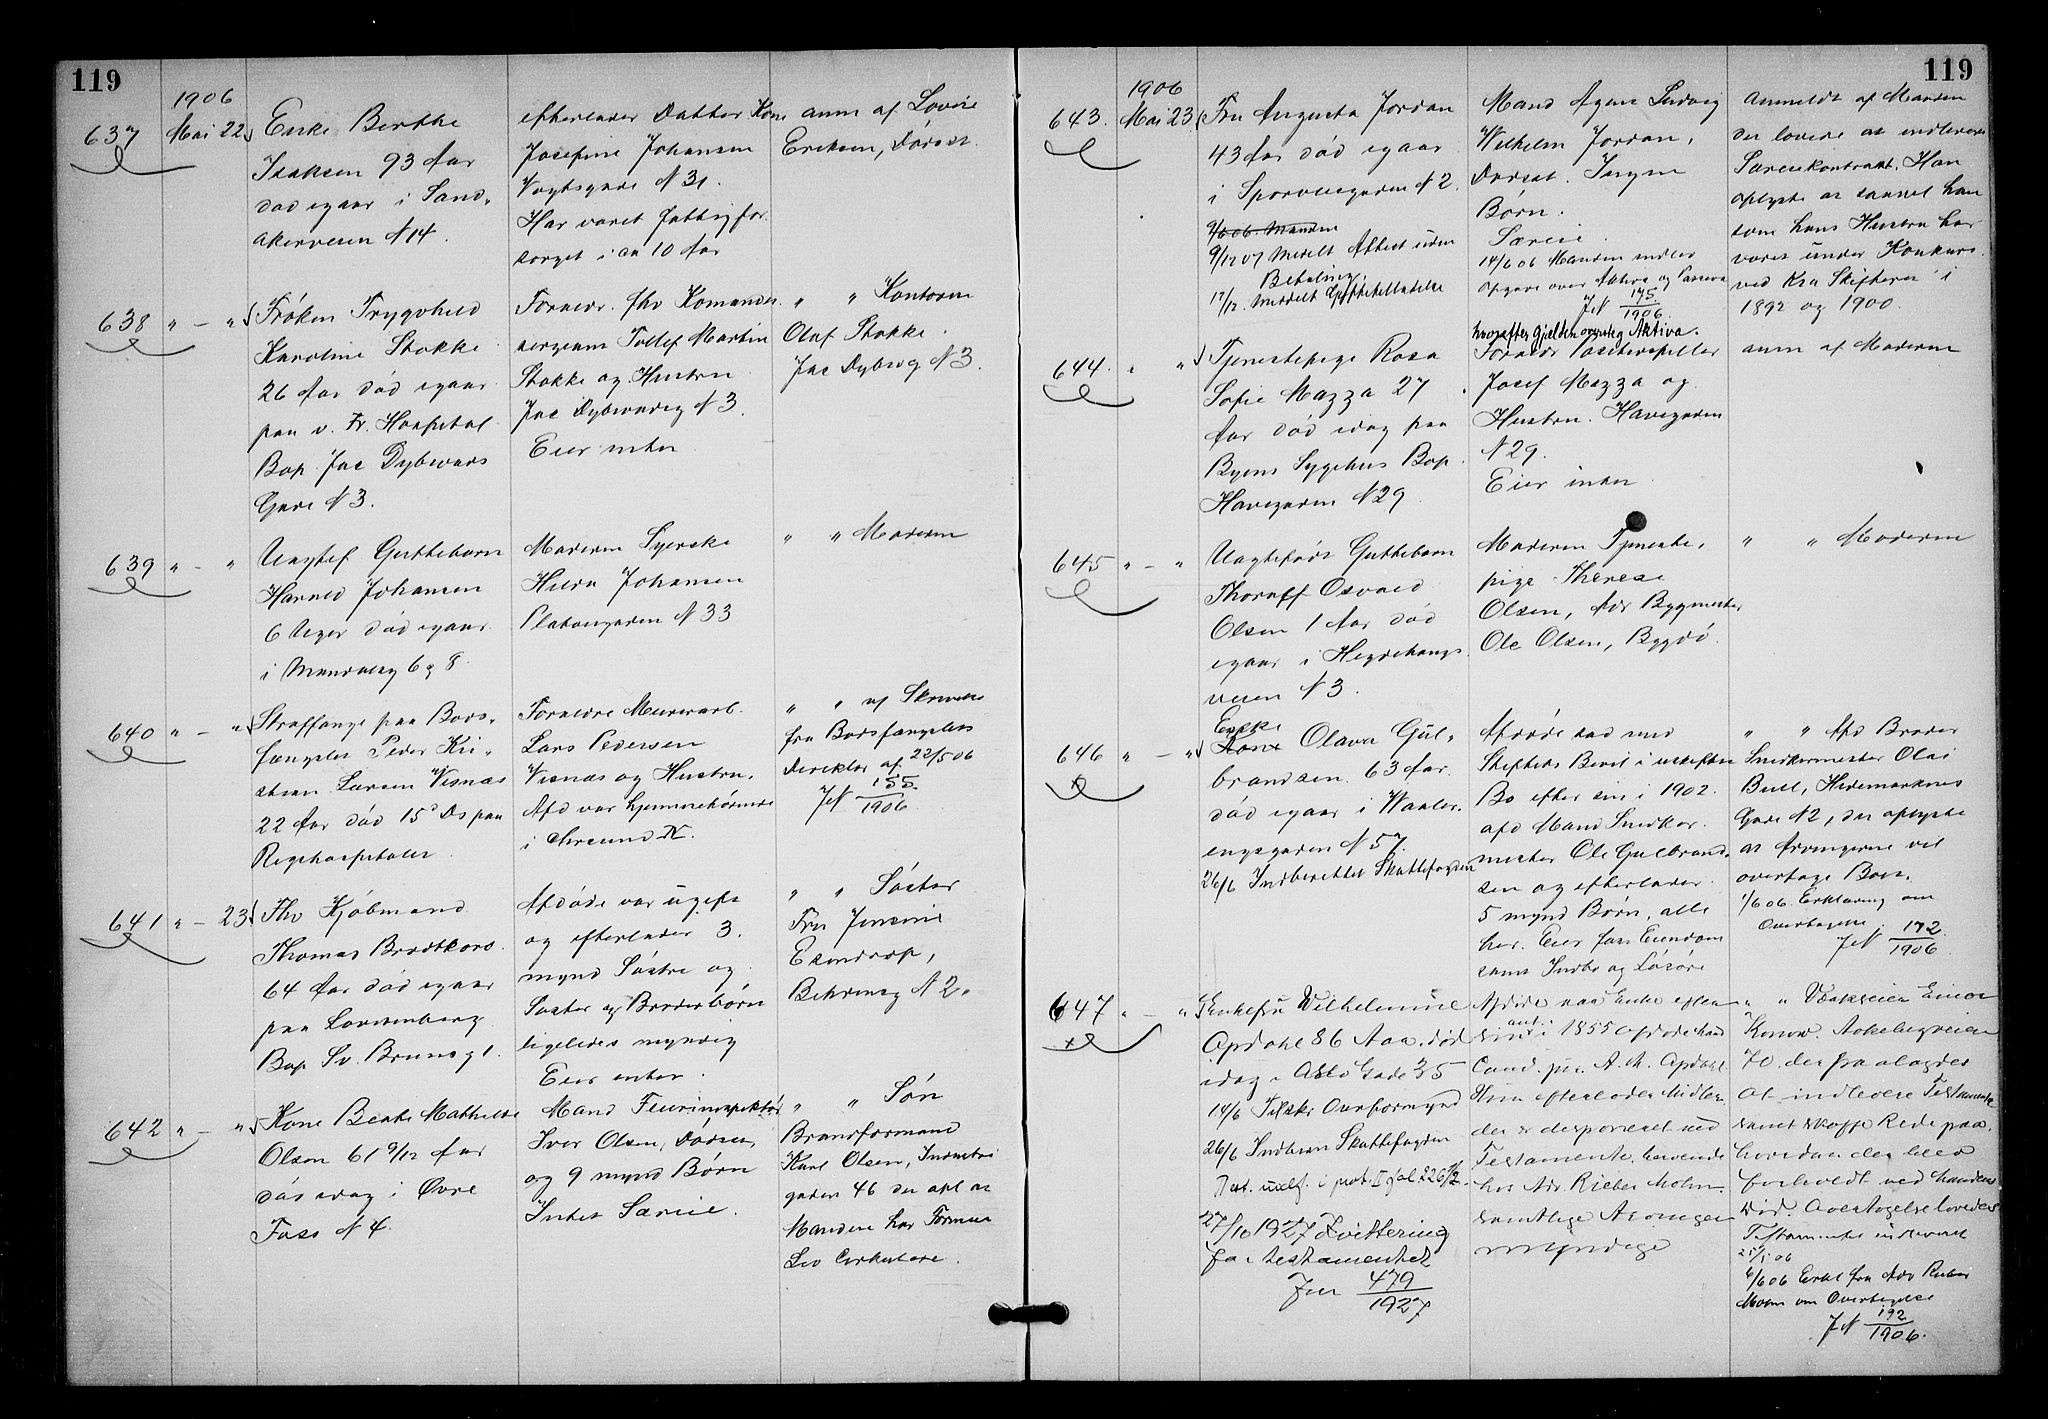 119
1906
637 Mai 22
Enke Berthe
Isaksen 93 Aar
død igaar i Sand-
akerveien N 14.
efterlader Datter Kone
Josefine Johansen
Vogtsgade N 31.
Har været Fattigfor-
sørget i ca 10 Aar
anm af Lovise
Eriksen, Dødsst.
638 " — "
Frøken Trygvhild
Karoline Stokke
26 Aar død igaar
paa v. Fr. Hospital
Bop. Jac Dybwads
Gade N 3.
Forældr. fhv
Martin
Stokke og Hustru
Jac Dybwadsg N 3.
Eier intet
" " Kontorist
Olaf Stokke
Jac Dybwg N 3.
639 " — "
Uægtef Guttebarn
Harald Johansen
6 Uger død igaar
i Mandalsg 6 & 8.
Moderen Syerske
Hilda Johansen
Platousgaden N 33
" " Moderen
640 " — "
Straffange paa Bods-
fængslet Peder Kri-
stian Larsen Visnæs
22 Aar død 15d Ds paa
Rigshospitalet
Forældre Murerarb.
Lars Pedersen
Visnæs og Hustru.
Afd var hjemmehørende
i
" " af Skrivelse
fra Bodsfængslets
Direktør af 22/5 06
J N 155/1906
641 " — 23
Fhv Kjøbmand
Thomas Brodtkorb
64 Aar død igaar
paa Lovisenberg
Bop Sv. Brunsg 1.
Afdøde var ugift
og efterlader 3
mynd Søstre og
Søster og Broderbørn
ligeledes myndig
Eier intet.
" " Søster
Fru Jensine
Esmdrop,
Behrensg N 2.
642 " — "
Kone Beate Mathilde
Olsen 61 9/12 Aar
død idag i Øvre
Foss N 4.
Mand
Iver Olsen, Dødsst,
og 9 mynd Børn
Intet Særeie.
" " Søn
Brandformand
Karl Olsen, Industri
gaden 46 der opl at
Manden har Formue
Lev Cirkulære.
119
1906
643. Mai 23
Fru Augusta Jordan
43 Aar død igaar
i Sporveisgaden N 2.
9/6 06. Manden
9/12 07 Meddelt Attest uden
Betaling.
17/12 Meddelt Giftetilladelse
Mand Agent Ludvig
Wilhelm Jordan,
Dødsst. Ingen
Børn.
Særeie.
14/6 06 Manden indlev
Opgave over Aktiva og Passiva
J N 175/1906
hvorefter Gjelden oversteg Aktiva.
Anmeldt af Manden
der lovede at indlevere
Særeiekontrakt. Han
oplyste at saavel han
som hans Hustru har
været under Konkurs
ved Kra Skifteret i
1892 og 1900.
644. " "
Tjenestepige Rosa
Sofie Mazza 27
Aar død idag paa
Byens Sygehus Bop.
Havegaden N 29
Forældr
Josef Mazza og
Hustru. Havegaden
N 29.
Eier intet
anm af Moderen
645 " — "
Uægtefødt Guttebarn
Thoralf Osvald
Olsen 1 Aar død
igaar i Hegdehaugs
veien N 3.
Moderen Tjeneste-
pige Therese
Olsen, Adr Bygmester
Ole Olsen, Bygdø.
" " Moderen
646 " — "
Enke
Kone Olava Gul-
brandsen. 63 Aar.
død igaar i Vaaler-
engsgaden N 57.
26/6 Indberettet Skattefogden
Afdøde sad med
Skifterets Bevil i uskiftet
Bo efter sin i 1902
afd Mand Snedker-
mester Ole Gulbrand-
sen og efterlader
5 mynd Børn, alle
her. Eier fast Eiendom
samt Indbo og Løsøre
" " Afd Broder
Snedkermester Olai
Bull, Hedemarkens
Gade N 2, der oplyste
at Arvingerne vil
overtage Boet.
1/6 06. Erklæring om
Overtagelse.
J N 172/1906.
647 " — "
Enkefru Wilhelmine
Opdahl 86 Aar død
idag i Oslo Gade 35
14/6 Tilskr Overformynd
26/6 Indberet Skattefogden
Test. udf. i prot. I fol 226 1/2.
27/10 1927 Kvittering
for testamentet
Jnr 479/1927
Afdøde var Enke efter
sin i 1855 afdøde Mand
Cand. jur. A. M. Opdahl
Hun efterlader Midler
der er disponeret ved
Testamente, beroende
hos Adv Rieber Mohn.
Samtlige Arvinger
myndige
" " Værkseier Einar
Konow. Aakebergveien
70. der fra
at indlevere Testamente
samt skaffe Rede paa
hvordan der blev
forholdt ved Mandens
Død. Overtagelse lovedes
Testamentet indleveret
25/5 06
6/6 06 Erkl fra Adv Rieber
Mohn om Overtagelse
J N 192/1906.